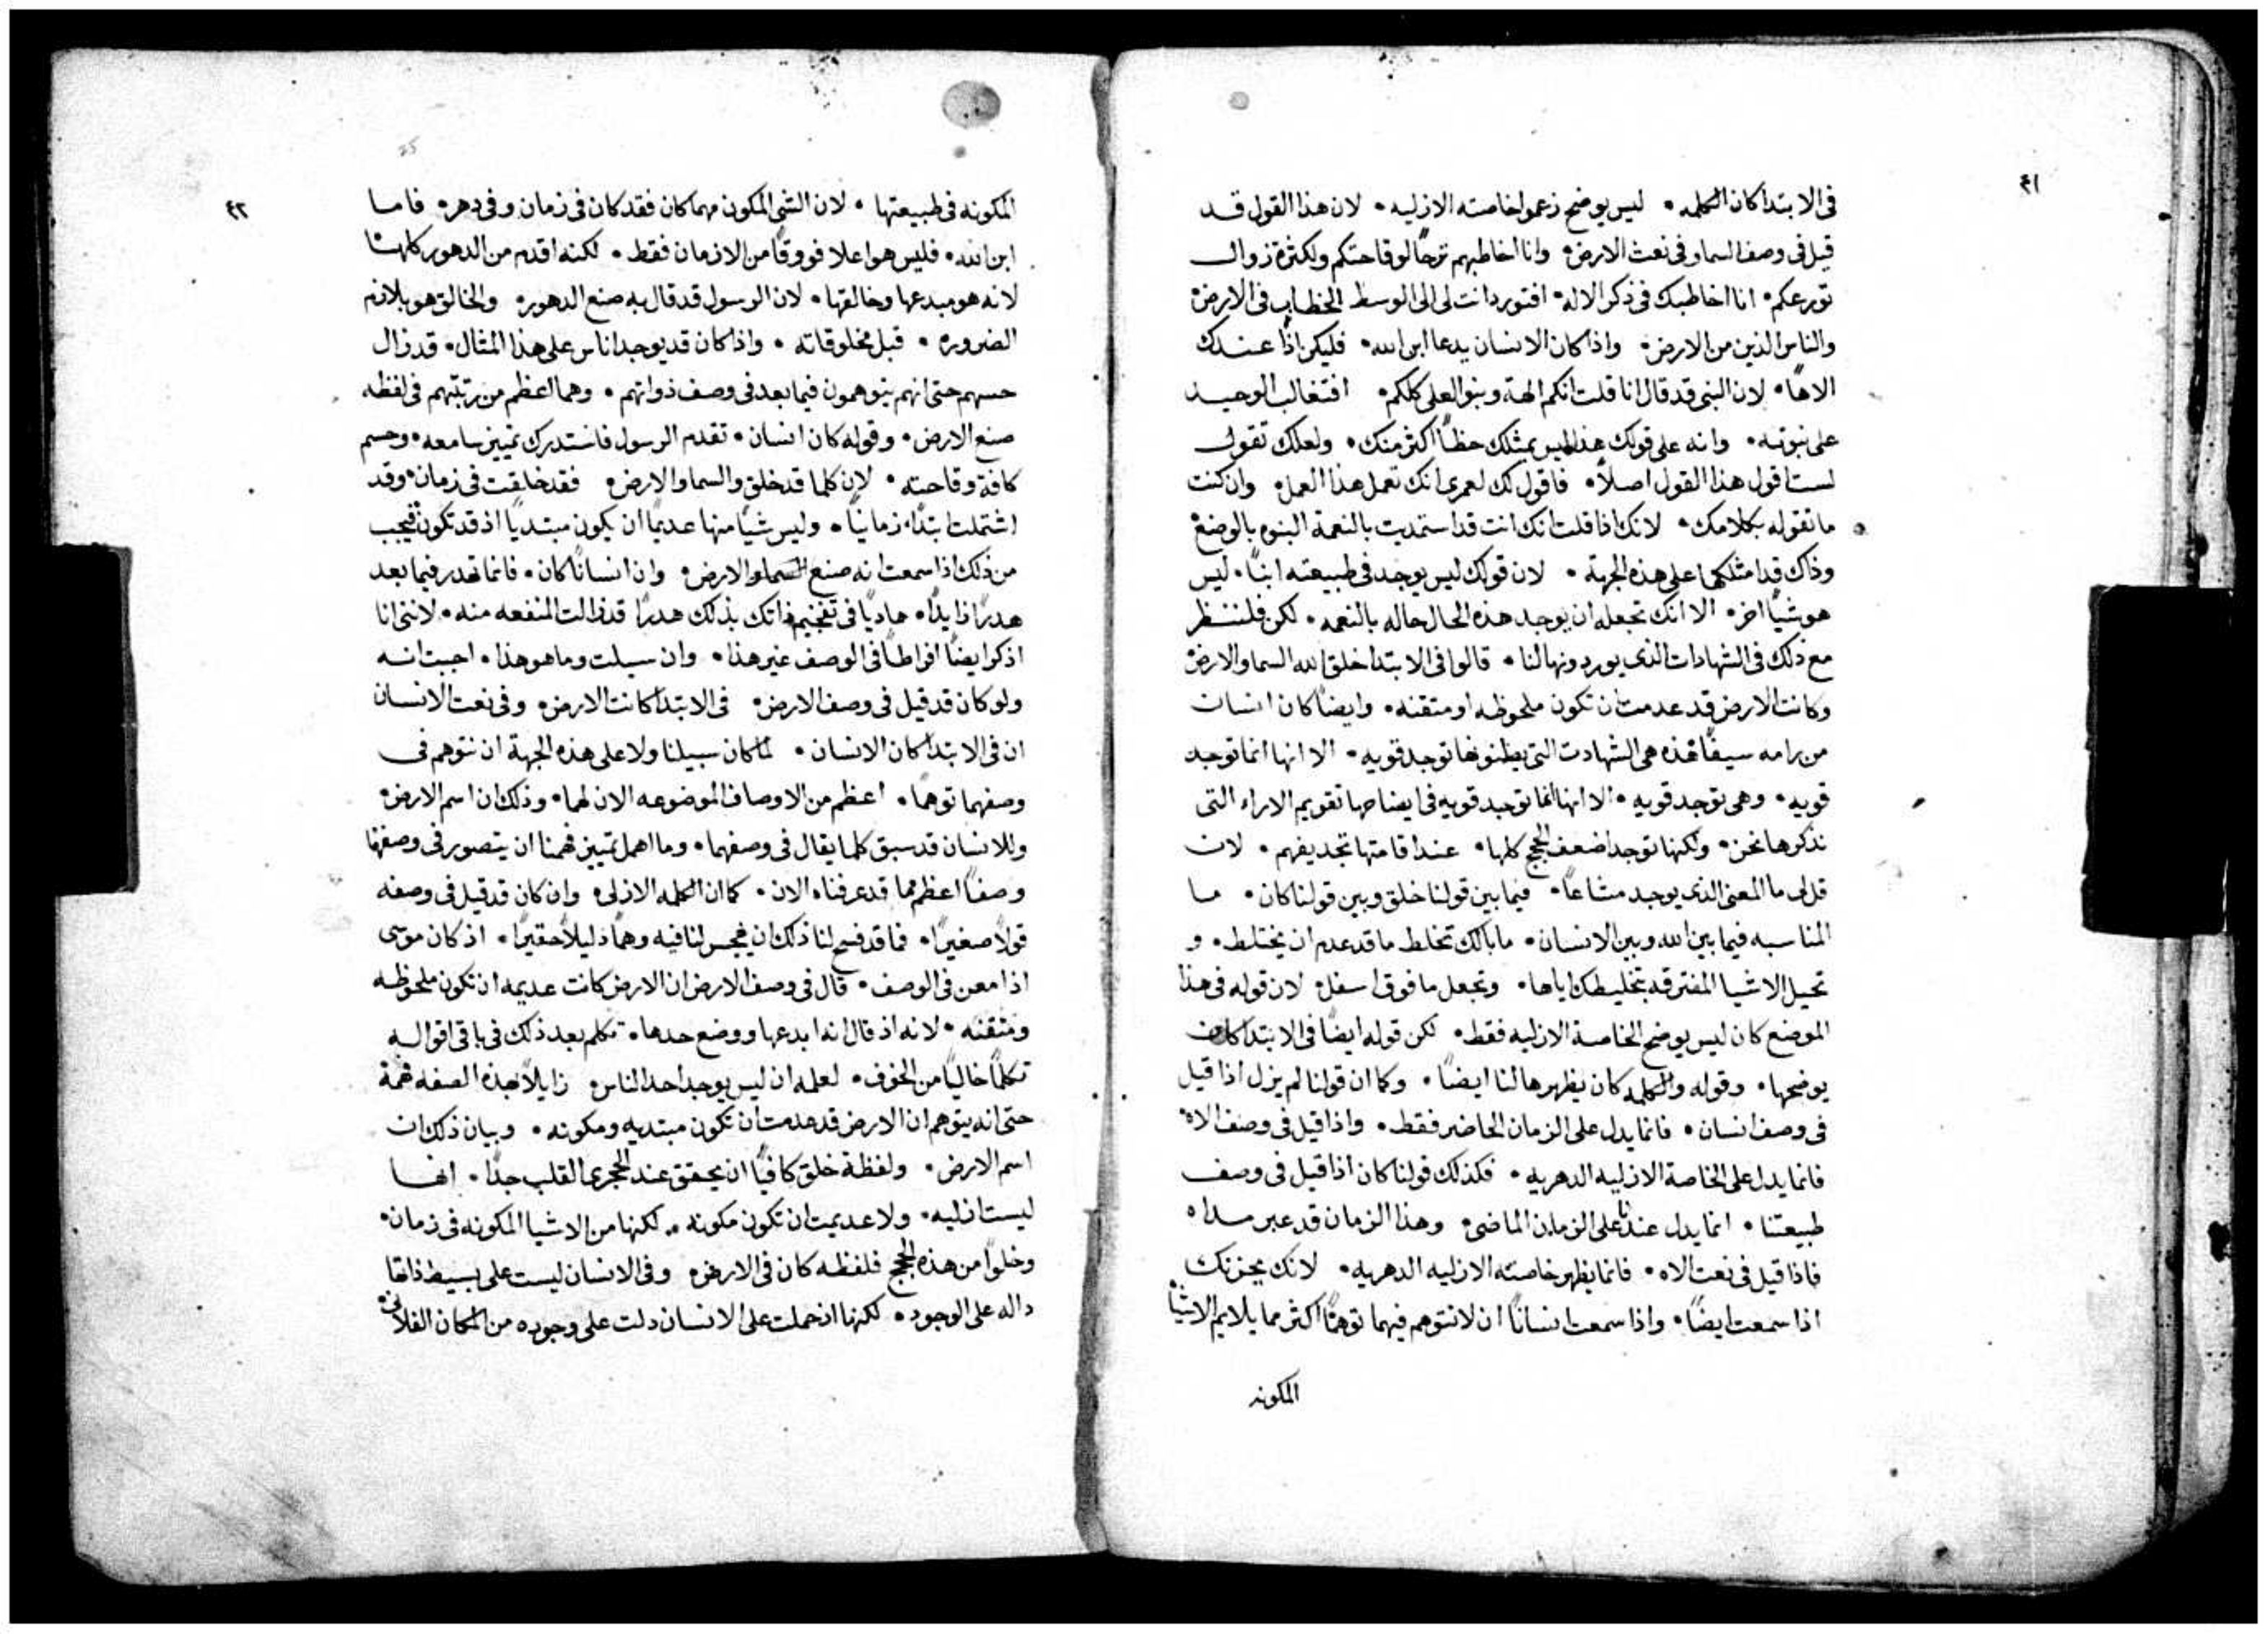 ٤١
في الابتدا كان الكلمه • ليس يوضح زعموا خاصته الازليه • لان هذا القول قد
قيل في وصف السما وفي نعت الارض • وانا اخاطبهم ترحًا لوقاحتكم ولكثرة زوال
تورعكم • انا اخاطبك في ذكر الاله • افتورد انت لي الى الوسط الخطاب في الارض
والناس الذين من الارض • واذا كان الانسان يدعا ابن الله • فليكن اذًا عندك
الاهًا • لان النبي قد قال انا قلت انكم الهة وبنو العلي كلكم • افتغالب الوحيد
على نبوته • وانه على قولك هذا ليس يمتلك حظًا اكثر منك • ولعلك تقول
لست اقول هذا القول اصلًا • فاقول لك لعمري انك تعمل هذا العمل • وان كنت
ما تقوله بكلامك • لانك اذا قلت انك انت قد استمديت بالنعمة البنوه بالوضع
وذاك قد امتلكها على هذه الجهة • لان قولك ليس يوجد في طبيعته ابنًا • ليس
هو شيًا اخر • الا انك تجعله ان يوجد هذه الحال حاله بالنعمه • لكن فلننظر
مع ذلك في الشهادات الذي يوردونها لنا • قالوا في الابتدا خلق الله السما والارض
وكانت الارض قد عدمت ان تكون ملحوظه او متقنه • وايضًا كان انسان
من رامه سيفًا فهذه هي الشهادت التي يظنونها توجد قويه • الا انها انما توجد
قويه • وهي توجد قويه • الا انها انما توجد قويه في ايضاحها تقويم الاراء التي
نذكرها نحن • ولكنها توجد اضعف الحجج كلها • عند اقامتها تجديفهم • لان
قل لي ما المعنى الذي يوجد مشاعًا • فيما بين قولنا خلق وبين قولنا كان • ما
المناسبه فيما بين الله وبين الانسان • ما بالك تخلط ما قد عدم ان يختلط • و
تحيل الاشيا المفترقه بتخليطك اياها • وتجعل ما فوق اسفل • لان قوله في هذا
الموضع كان ليس يوضح الخاصة الازليه فقط • لكن قوله ايضًا في الابتدا كان
يوضحها • وقوله والكلمه كان يظهرها لنا ايضًا • وكما ان قولنا لم يزل اذا قيل
في وصف انسان • فانما يدل على الزمان الحاضر فقط • واذا قيل في وصف الاه •
فانما يدل على الخاصة الازليه الدهريه • فكذلك قولنا كان اذا قيل في وصف
طبيعتنا • انما يدل عندنا على الزمان الماضي • وهذا الزمان قد عبر مداه
فاذا قيل في نعت الاه • فانما يظهر خاصته الازليه الدهريه • لانك يجزيك
اذا سمعت ايضًا • واذا سمعت انسانًا ان لا نتوهم فيهما توهمًا اكثر مما يلايم الاشيا
المكونه
٤٢
المكونه في طبيعتها • لان الشي المكون مهما كان فقد كان في زمان وفي دهر • فاما
ابن الله • فليس هو اعلا فووقًا من الازمان فقط • لكنه اقدم من الدهور كلها
لانه هو مبدعها وخالقها • لان الرسول قد قال به صنع الدهور • والخالق هو بلازم
الضروره • قبل مخلوقاته • واذا كان قد يوجد اناس على هذا المثال • قد زال
حسهم حتى انهم يتوهمون فيما بعد في وصف ذواتهم • وهما اعظم من رتبتهم في لفظه
صنع الارض • وقوله كان انسان • تقدم الرسول فاستدرك تمييز سامعه • وحسم
كافة وقاحته • لان كلما قد خلق والسما والارض • فقد خلقت في زمان • وقد
اشتملت ابتدًا زمانيًا • وليس شيًا منها عديمًا ان يكون مبتديًا اذ قد تكون فيجب
من ذلك اذا سمعت انه صنع السما والارض • وان انسانًا كان • فانما تهدر فيما بعد
هدرًا زايدًا • هاديًا في تفخيم ذاتك بذلك هدرًا قد زالت المنفعه منه • لانني انا
اذكر ايضًا افراطًا في الوصف غير هذا • وان سيلت وما هو هذا • اجبت انه
ولو كان قد قيل في وصف الارض • في الابتدا كانت الارض • وفي نعت الانسان
ان في الابتدا كان الانسان • لما كان سبيلنا ولا على هذه الجهة ان نتوهم في
وصفهما توهمًا • اعظم من الاوصاف الموضوعه الان لهما • وذلك ان اسم الارض •
وللانسان قد سبق كلما يقال في وصفهما • وما اهمل تمييز فهمنا ان يتصور في وصفهما
وصفًا اعظم مما قد عرفناه الان • كما ان الكلمه الازلي • وان كان قد قيل في وصفه
قولًا صغيرًا • فما قد فسح لنا ذلك ان يهجس لنا فيه وهمًا ذليلًا حقيرًا • اذ كان موسى
اذا معن في الوصف • قال في وصف الارض ان الارض كانت عديمه ان تكون ملحوظه
ومتقنه • لانه اذ قال انه ابدعها ووضع حدها • تكلم بعد ذلك في باقي اقواله
تكلمًا خاليًا من الخوف • لعلمه ان ليس يوجد احد الناس • زايلًا بهذه الصفه فهمة
حتى انه يتوهم ان الارض قد عدمت ان تكون مبتديه ومكونه • وبيان ذلك ان
اسم الارض • ولفظة خلق كافيًا ان يحقق عند الحجري القلب جدًا • انها
ليست ازليه • ولا عديمت ان تكون مكونه • لكنها من الاشيا المكونه في زمان •
وخلوًا من هذه الحجج فلفظه كان في الارض • وفي الانسان ليست على بسيط ذاتها
داله على الوجود • لكنها ان حملت على الانسان دلت على وجوده من المكان الفلاني •